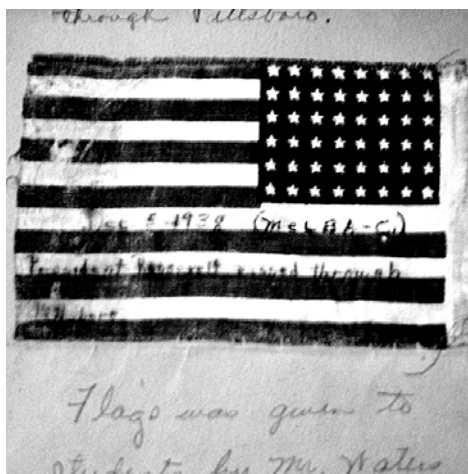 through Pittsboro.
Dec 5 1938 (Melba-C.)
President Roosevelt passed through
Pittsboro
Flags was given to
students by Mr. Waters